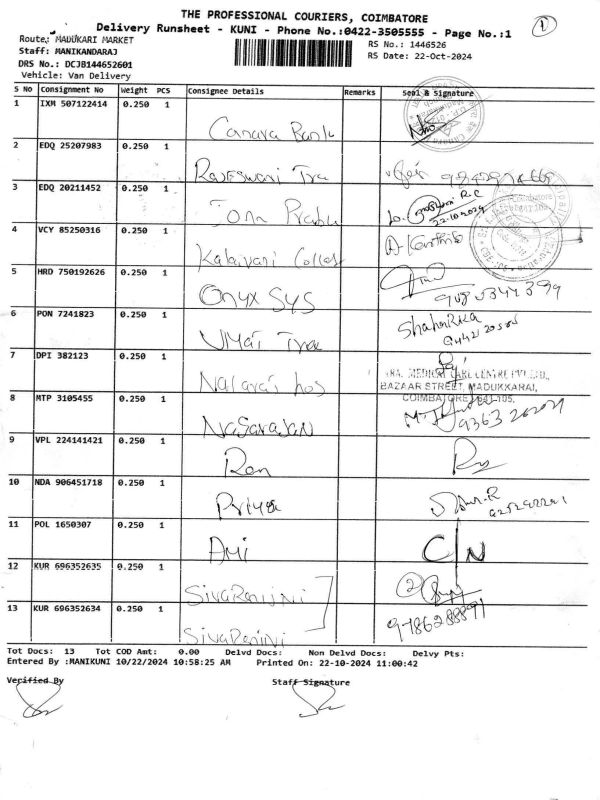 THE PROFESSIONAL COURIERS, COIMBATORE
Delivery Runsheet - KUNI - Phone No.:0422-3505555 - Page No.:1
1
Route: MADUKARI MARKET
RS No.: 1446526
Staff: MANIKANDARAJ
RS Date: 22-Oct-2024
DRS No.: DCJB144652601
Vehicle: Van Delivery
S No Consignment No Weight PCS Consignee Details Remarks Seal & Signature
1 IXM 507122414 0.250 1 Canara Bank
2 EDQ 25207983 0.250 1 Rajeswari Tra
3 EDQ 20211452 0.250 1 John Prabu
22.10.2024
4 VCY 85250316 0.250 1 Kalaivani Colleg
5 HRD 750192626 0.250 1 Onyx Sys
6 PON 7241823 0.250 1 UMAI Tra
7 DPI 382123 0.250 1 Nataraj hos
MEDICAL CARE CENTRE PVT LTD.,
BAZAAR STREET, MADUKKARAI,
COIMBATORE - 641 105.
8 MTP 3105455 0.250 1 NAGARAJAN
9 VPL 224141421 0.250 1 Ram
10 NDA 906451718 0.250 1 Priya
11 POL 1650307 0.250 1 Ami C/N
12 KUR 696352635 0.250 1 SivaRanjini 2
13 KUR 696352634 0.250 1 SivaRanjini 9786288891
Tot Docs: 13 Tot COD Amt: 0.00 Delvd Docs: Non Delvd Docs: Delvy Pts:
Entered By :MANIKUNI 10/22/2024 10:58:25 AM Printed On: 22-10-2024 11:00:42
Verified By Staff Signature